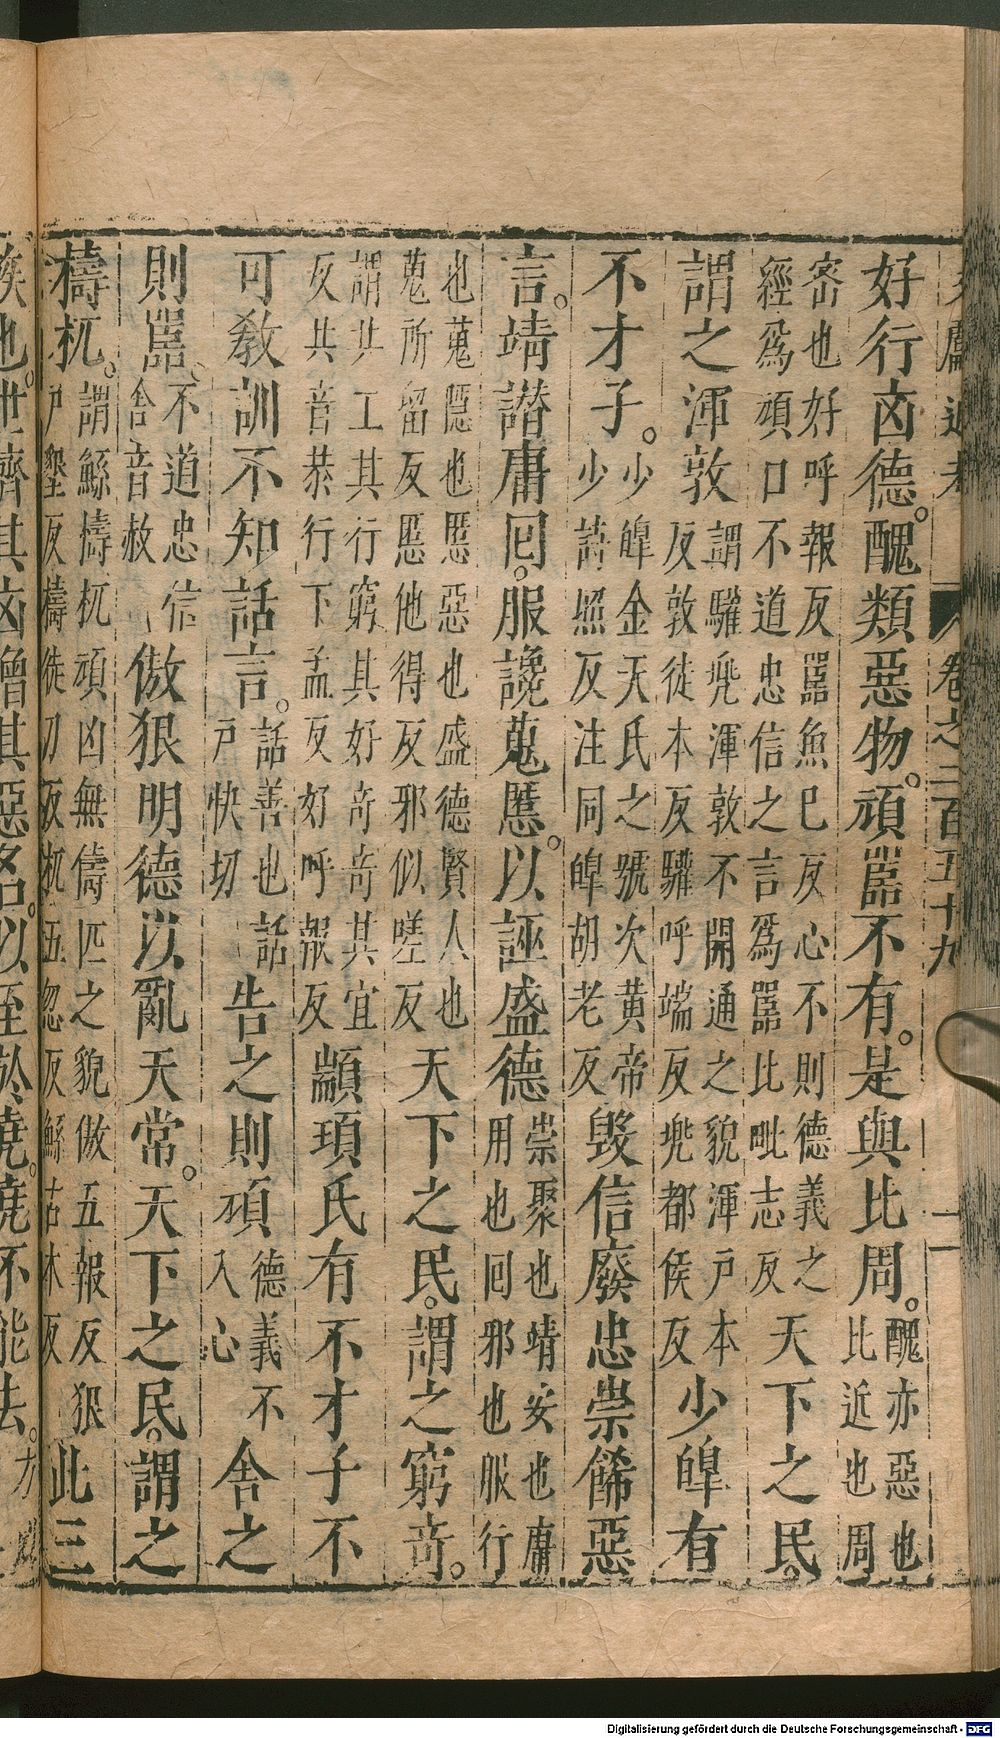 獻通考 卷之二百五十九
好行凶德。醜類惡物。頑嚚不有。是與比周。醜亦惡也比近也周
密也好呼報反嚚魚巳反心不則德義之經爲頑口不道忠信之言爲嚚比毗志反天下之民。
謂之渾敦謂驩兠渾敦不開通之貌渾戸本反敦徒本反驩呼端反兠都侯反少皥有
不才子。少皥金天氏之號次黃帝少詩照反注同皥胡老反毀信廢忠崇餙惡
言。靖譖庸囘。服讒蒐慝。以誣盛德崇聚也靖安也庸用也囘邪也服行
也蒐隱也慝惡也盛德賢人也蒐所留反慝他得反邪似嗟反天下之民。謂之窮竒。
謂共工其行窮其好竒竒其宜反共音恭行下孟反好呼報反顓頊氏有不才子不
可敎訓不知話言。話善也話戸快切告之則頑德義不入心舍之
則嚚。不道忠信舍音赦傲狠明德以亂天常。天下之民。謂之
檮杌。謂鯀檮杌頑凶無儔匹之貌傲五報反狠戸墾反檮徒刀反杌五忽反鯀古本反此三
族也。世濟其凶增其惡名。以至於堯。堯不能去。方
Digitalisierung gefördert durch die Deutsche Forschungsgemeinschaft - DFG